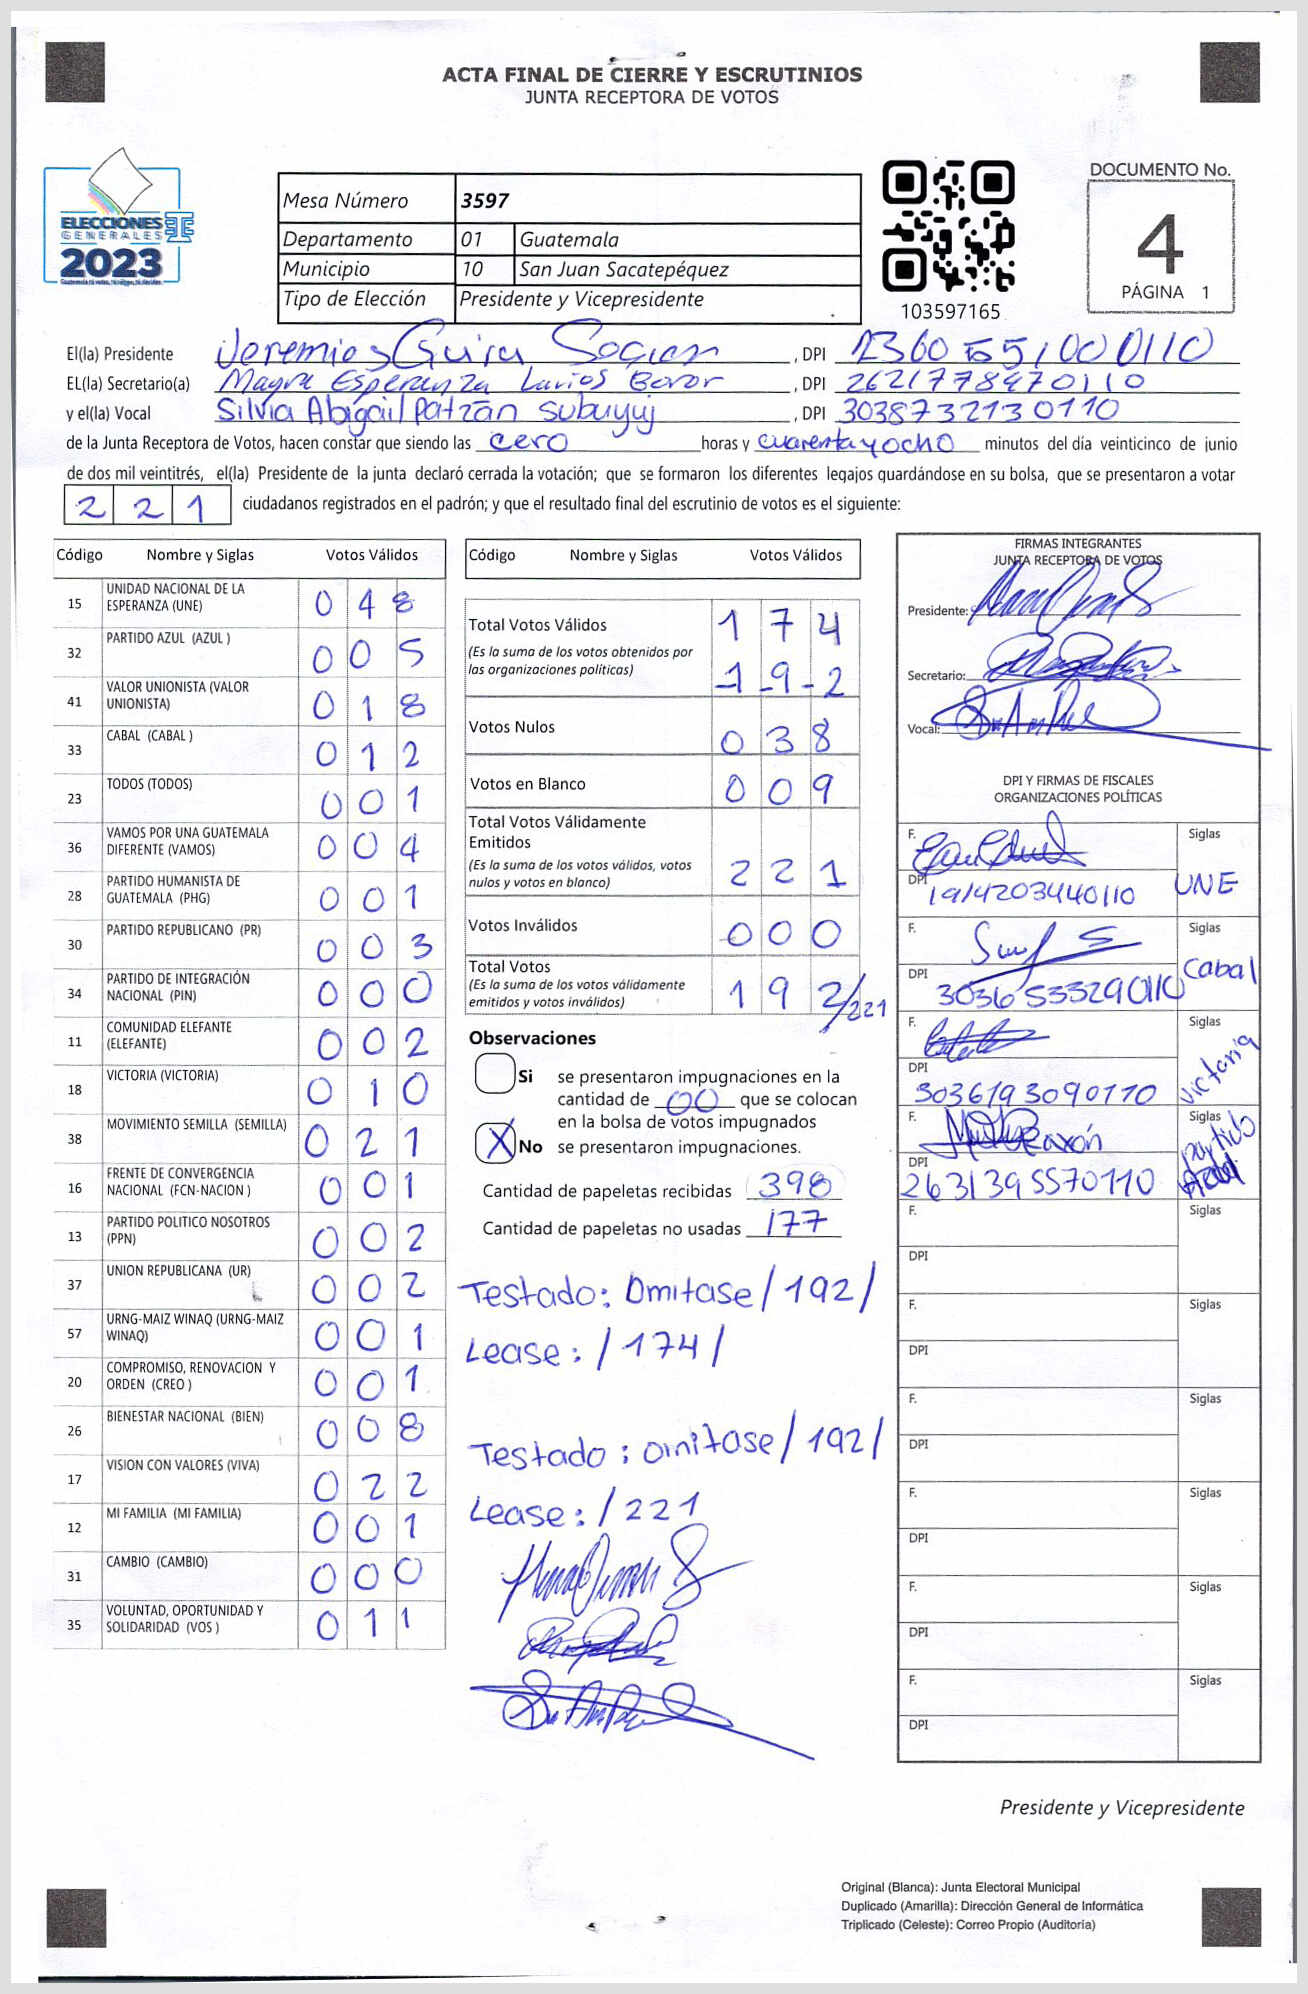 ACTA FINAL DE CIERRE Y ESCRUTINIOS
JUNTA RECEPTORA DE VOTOS
ELECCIONES
GENERALES
2023
Mesa Número 3597
Departamento 01 Guatemala
Municipio 10 San Juan Sacatepéquez
Tipo de Elección Presidente y Vicepresidente
103597165
DOCUMENTO No.
4
PÁGINA 1
El(la) Presidente Jeremias , DPI
EL(la) Secretario(a) Mayra Esperanza Larios Boror , DPI 2621778970110
y el(la) Vocal Silvia Abigail Patzán Subuyuj , DPI 3038732130110
de la Junta Receptora de Votos, hacen constar que siendo las cero horas y cuarenta y ocho minutos del día veinticinco de junio
de dos mil veintitrés, el(la) Presidente de la junta declaró cerrada la votación; que se formaron los diferentes legajos guardándose en su bolsa, que se presentaron a votar
2 2 1 ciudadanos registrados en el padrón; y que el resultado final del escrutinio de votos es el siguiente:
Código Nombre y Siglas Votos Válidos
15 UNIDAD NACIONAL DE LA ESPERANZA (UNE) 0 4 8
32 PARTIDO AZUL (AZUL ) 0 0 5
41 VALOR UNIONISTA (VALOR UNIONISTA) 0 1 8
33 CABAL (CABAL ) 0 1 2
23 TODOS (TODOS) 0 0 1
36 VAMOS POR UNA GUATEMALA DIFERENTE (VAMOS) 0 0 4
28 PARTIDO HUMANISTA DE GUATEMALA (PHG) 0 0 1
30 PARTIDO REPUBLICANO (PR) 0 0 3
34 PARTIDO DE INTEGRACIÓN NACIONAL (PIN) 0 0 0
11 COMUNIDAD ELEFANTE (ELEFANTE) 0 0 2
18 VICTORIA (VICTORIA) 0 1 0
38 MOVIMIENTO SEMILLA (SEMILLA) 0 2 1
16 FRENTE DE CONVERGENCIA NACIONAL (FCN-NACION ) 0 0 1
13 PARTIDO POLITICO NOSOTROS (PPN) 0 0 2
37 UNION REPUBLICANA (UR) 0 0 2
57 URNG-MAIZ WINAQ (URNG-MAIZ WINAQ) 0 0 1
20 COMPROMISO, RENOVACION Y ORDEN (CREO ) 0 0 1
26 BIENESTAR NACIONAL (BIEN) 0 0 8
17 VISION CON VALORES (VIVA) 0 2 2
12 MI FAMILIA (MI FAMILIA) 0 0 1
31 CAMBIO (CAMBIO) 0 0 0
35 VOLUNTAD, OPORTUNIDAD Y SOLIDARIDAD (VOS ) 0 1 1
Código Nombre y Siglas Votos Válidos
Total Votos Válidos 1 7 4
(Es la suma de los votos obtenidos por
las organizaciones políticas) 1 9 2
Votos Nulos 0 3 8
Votos en Blanco 0 0 9
Total Votos Válidamente
Emitidos
(Es la suma de los votos válidos, votos
nulos y votos en blanco) 2 2 1
Votos Inválidos 0 0 0
Total Votos
(Es la suma de los votos válidamente
emitidos y votos inválidos) 1 9 2/221
Observaciones
Si se presentaron impugnaciones en la
cantidad de 00 que se colocan
en la bolsa de votos impugnados
X No se presentaron impugnaciones.
Cantidad de papeletas recibidas 398
Cantidad de papeletas no usadas 177
Testado: Omitase/192/
Lease: /174/
Testado: omitase/192/
Lease: /221
FIRMAS INTEGRANTES
JUNTA RECEPTORA DE VOTOS
Presidente:
Secretario:
Vocal:
DPI Y FIRMAS DE FISCALES
ORGANIZACIONES POLÍTICAS
F. Siglas
DPI 1914203440110 UNE
F. Siglas
DPI Cabal
F. Siglas
DPI 3036193090110 Victoria
F. Siglas
DPI 2631395570110 partido
F. Siglas
DPI
F. Siglas
DPI
F. Siglas
DPI
F. Siglas
DPI
F. Siglas
DPI
F. Siglas
DPI
Presidente y Vicepresidente
Original (Blanca): Junta Electoral Municipal
Duplicado (Amarilla): Dirección General de Informática
Triplicado (Celeste): Correo Propio (Auditoría)